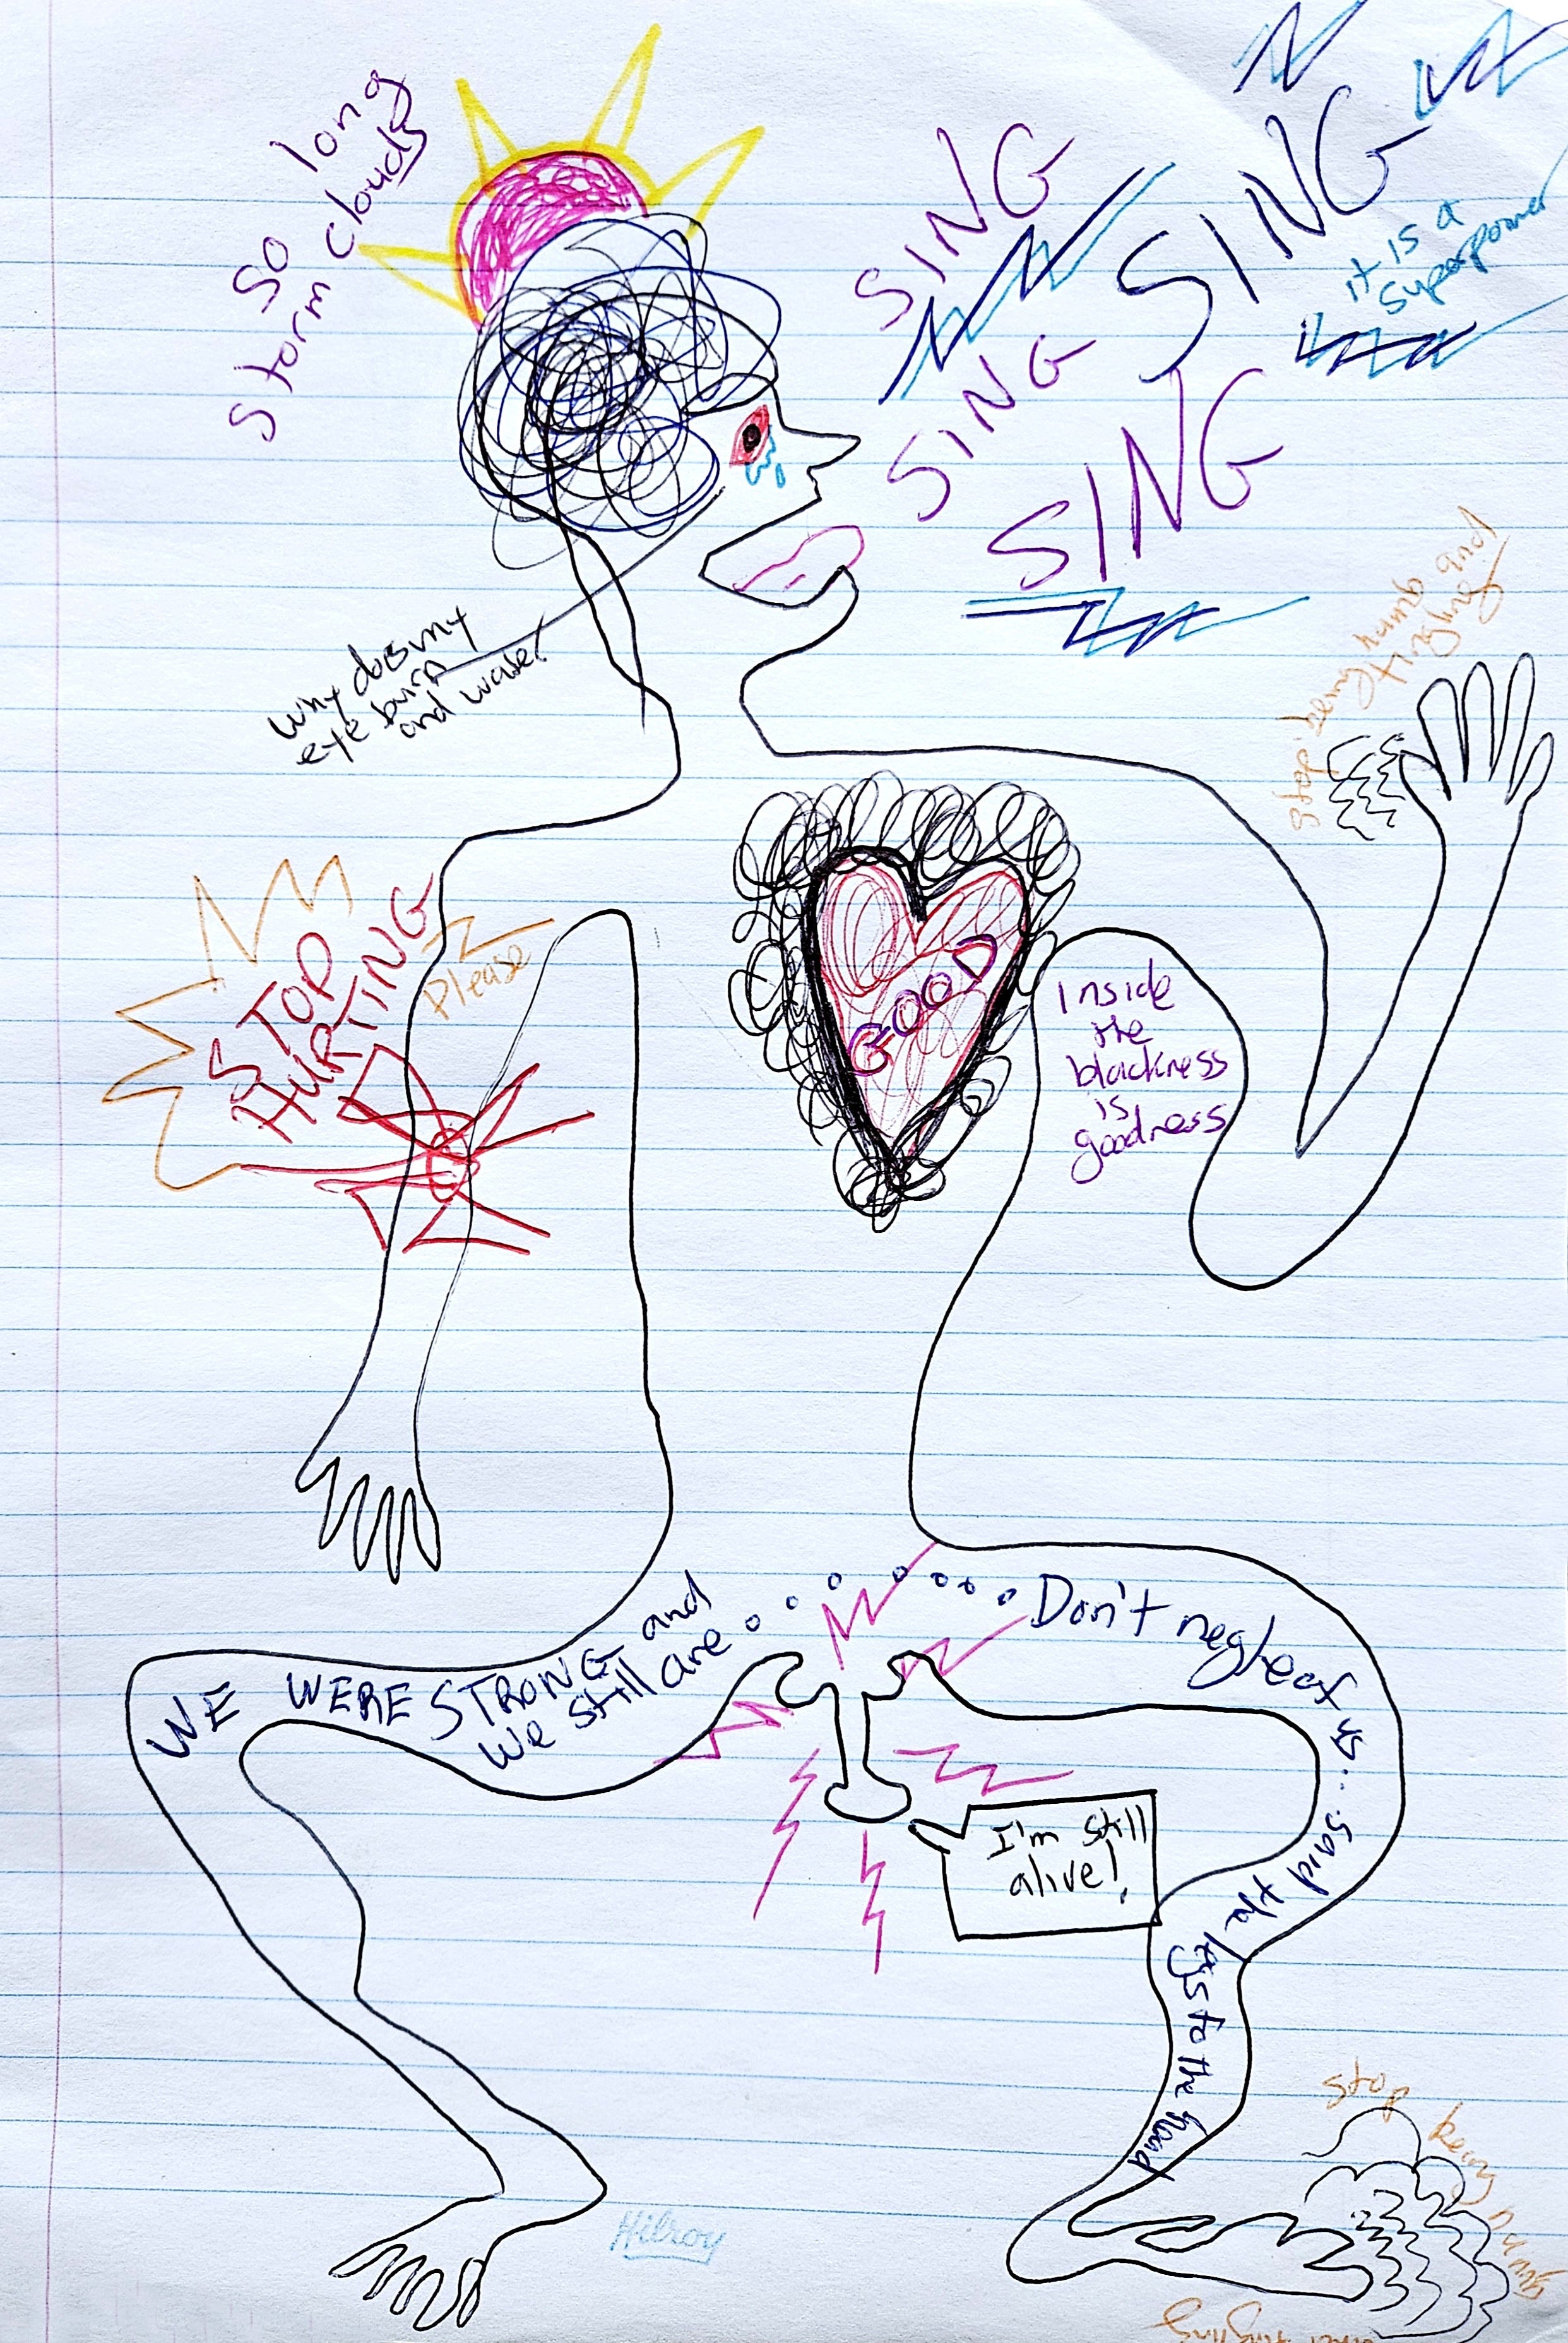 So long
storm clouds
SING
SING
it is a
superpower
SING
SING
why does my
eye burn
and water
stop being numb and
tingling
STOP
HURTING
Please
GOOD
Inside
the
blackness
is
goodness
WE WERE STRONG and
We still are
Don't neglect us... said the legs to the head
I'm still
alive!
stop being numb
and tingling
Hilroy